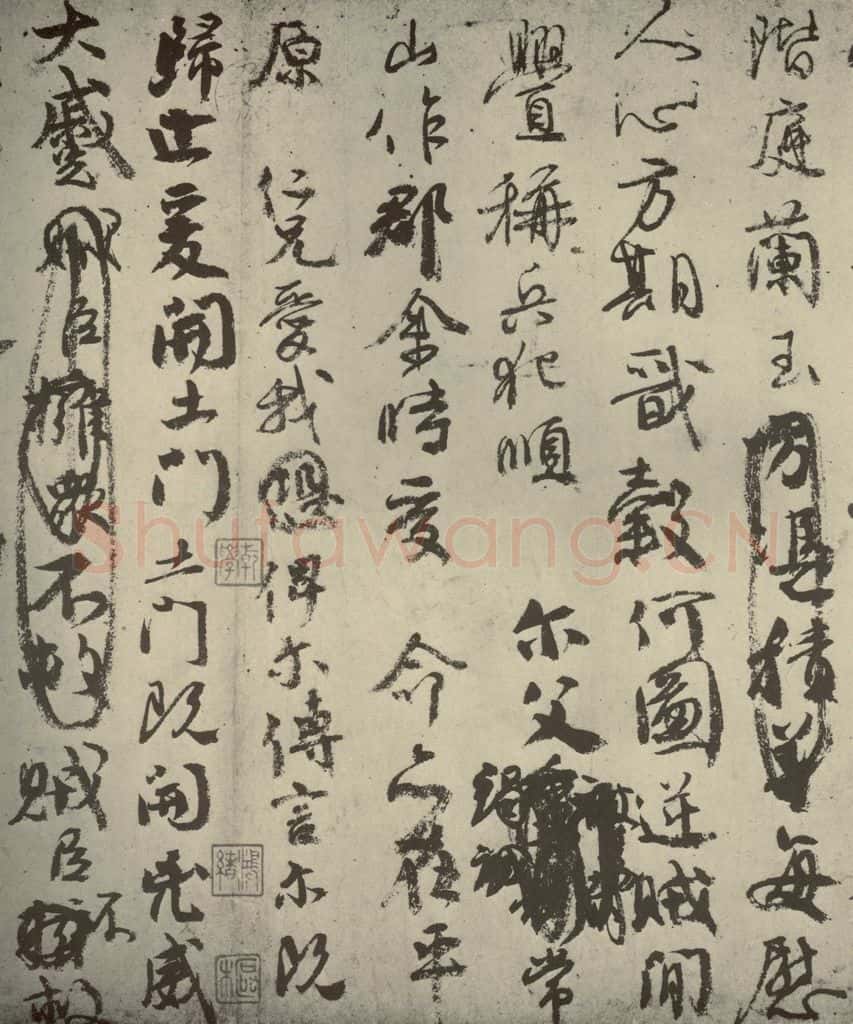 階庭蘭玉方憑積善每慰
人心方期戩穀何圖逆賊間
釁稱兵犯順尔父竭誠常
山作郡余時受命亦在平
原仁兄愛我恐俾尔傳言尔既
歸止爰開土門土門既開凶威
大蹙賊臣擁眾不救賊臣不救
Shufawang.CN